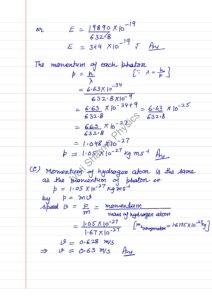 or E = 19890 × 10⁻¹⁹ / 632.8
E = 314 × 10⁻¹⁹ J Ans
The momentum of each photon
p = h/λ [∵ λ = h/p]
= 6.63 × 10⁻³⁴ / 632.8 × 10⁻⁹
= 6.63/632.8 × 10⁻³⁴⁺⁹ = 6.63/632.8 × 10⁻²⁵
= 663/632.8 × 10⁻²⁷
= 1.048 × 10⁻²⁷
p = 1.05 × 10⁻²⁷ kg ms⁻¹ Ans
(C) Momentum of hydrogen atom is the same
as the momentum of photon
p = 1.05 × 10⁻²⁷ kg ms⁻¹
by p = mv
speed v = p/m = momentum / mass of hydrogen atom
= 1.05 × 10⁻²⁷ / 1.67 × 10⁻²⁷
v = 0.628 m/s
⇒ v = 0.63 m/s Ans
Physics